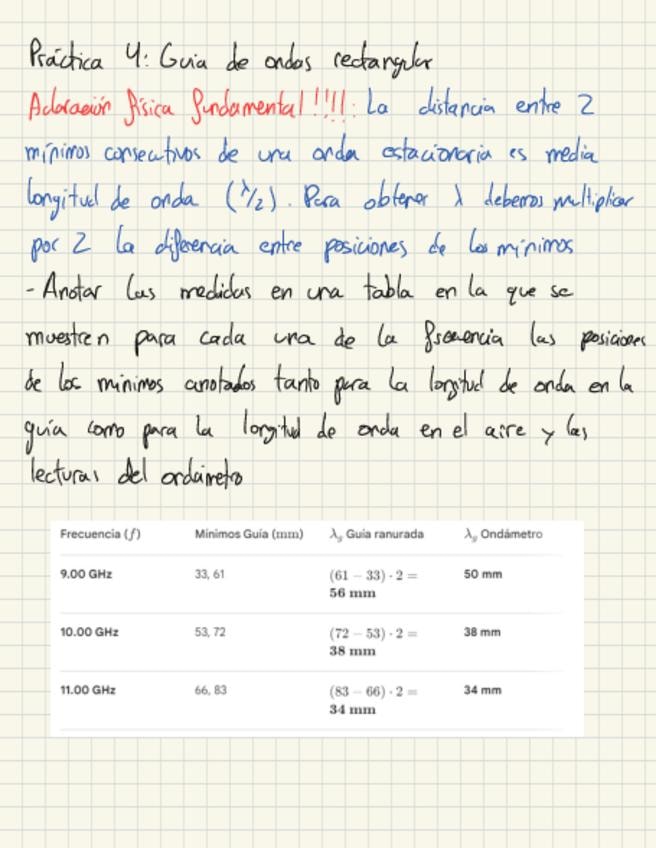 Práctica 4: Guia de ondas rectangular
Aclaración física fundamental!!!!: La distancia entre 2
mínimos consecutivos de una onda estacionaria es media
longitud de onda (λ/2). Para obtener λ debemos multiplicar
por 2 la diferencia entre posiciones de los mínimos
- Anotar las medidas en una tabla en la que se
muestren para cada una de la frecuencia las posiciones
de los mínimos anotados tanto para la longitud de onda en la
guía como para la longitud de onda en el aire y las
lecturas del ondámetro
Frecuencia (f) Mínimos Guía (mm) λg Guía ranurada λg Ondámetro
9.00 GHz 33, 61 (61 − 33) · 2 = 50 mm
56 mm
10.00 GHz 53, 72 (72 − 53) · 2 = 38 mm
38 mm
11.00 GHz 66, 83 (83 − 66) · 2 = 34 mm
34 mm